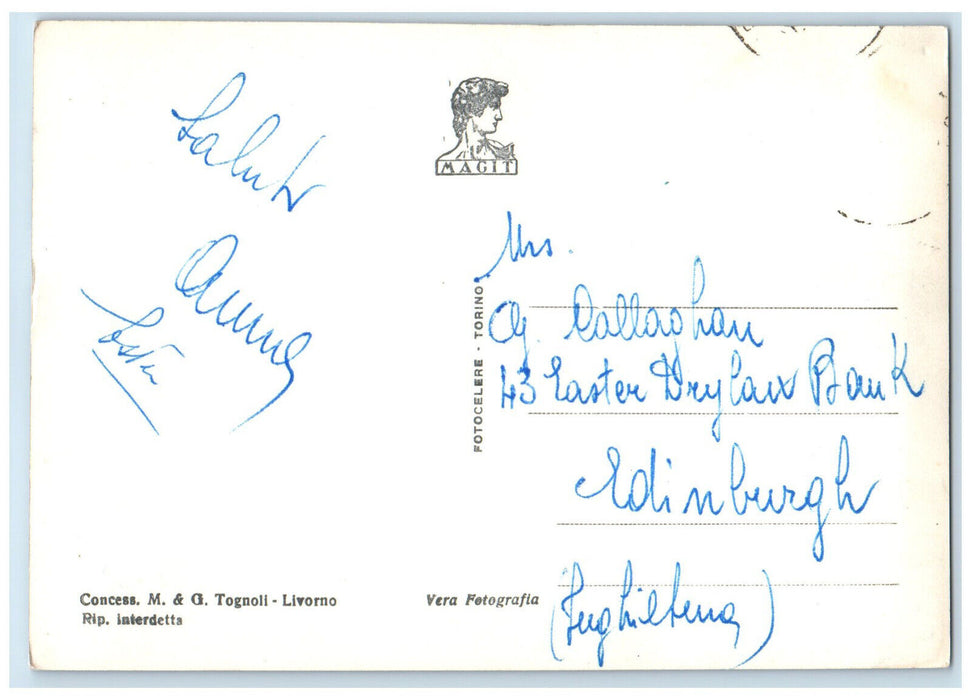 Saluti
MAGIT
Mrs.
FOTOCELERE - TORINO
O. Callaghan
43 Easter Drylaw Bank
Edinburgh
(Inghilterra)
Concess. M. & G. Tognoli - Livorno
Rip. interdetta
Vera Fotografia